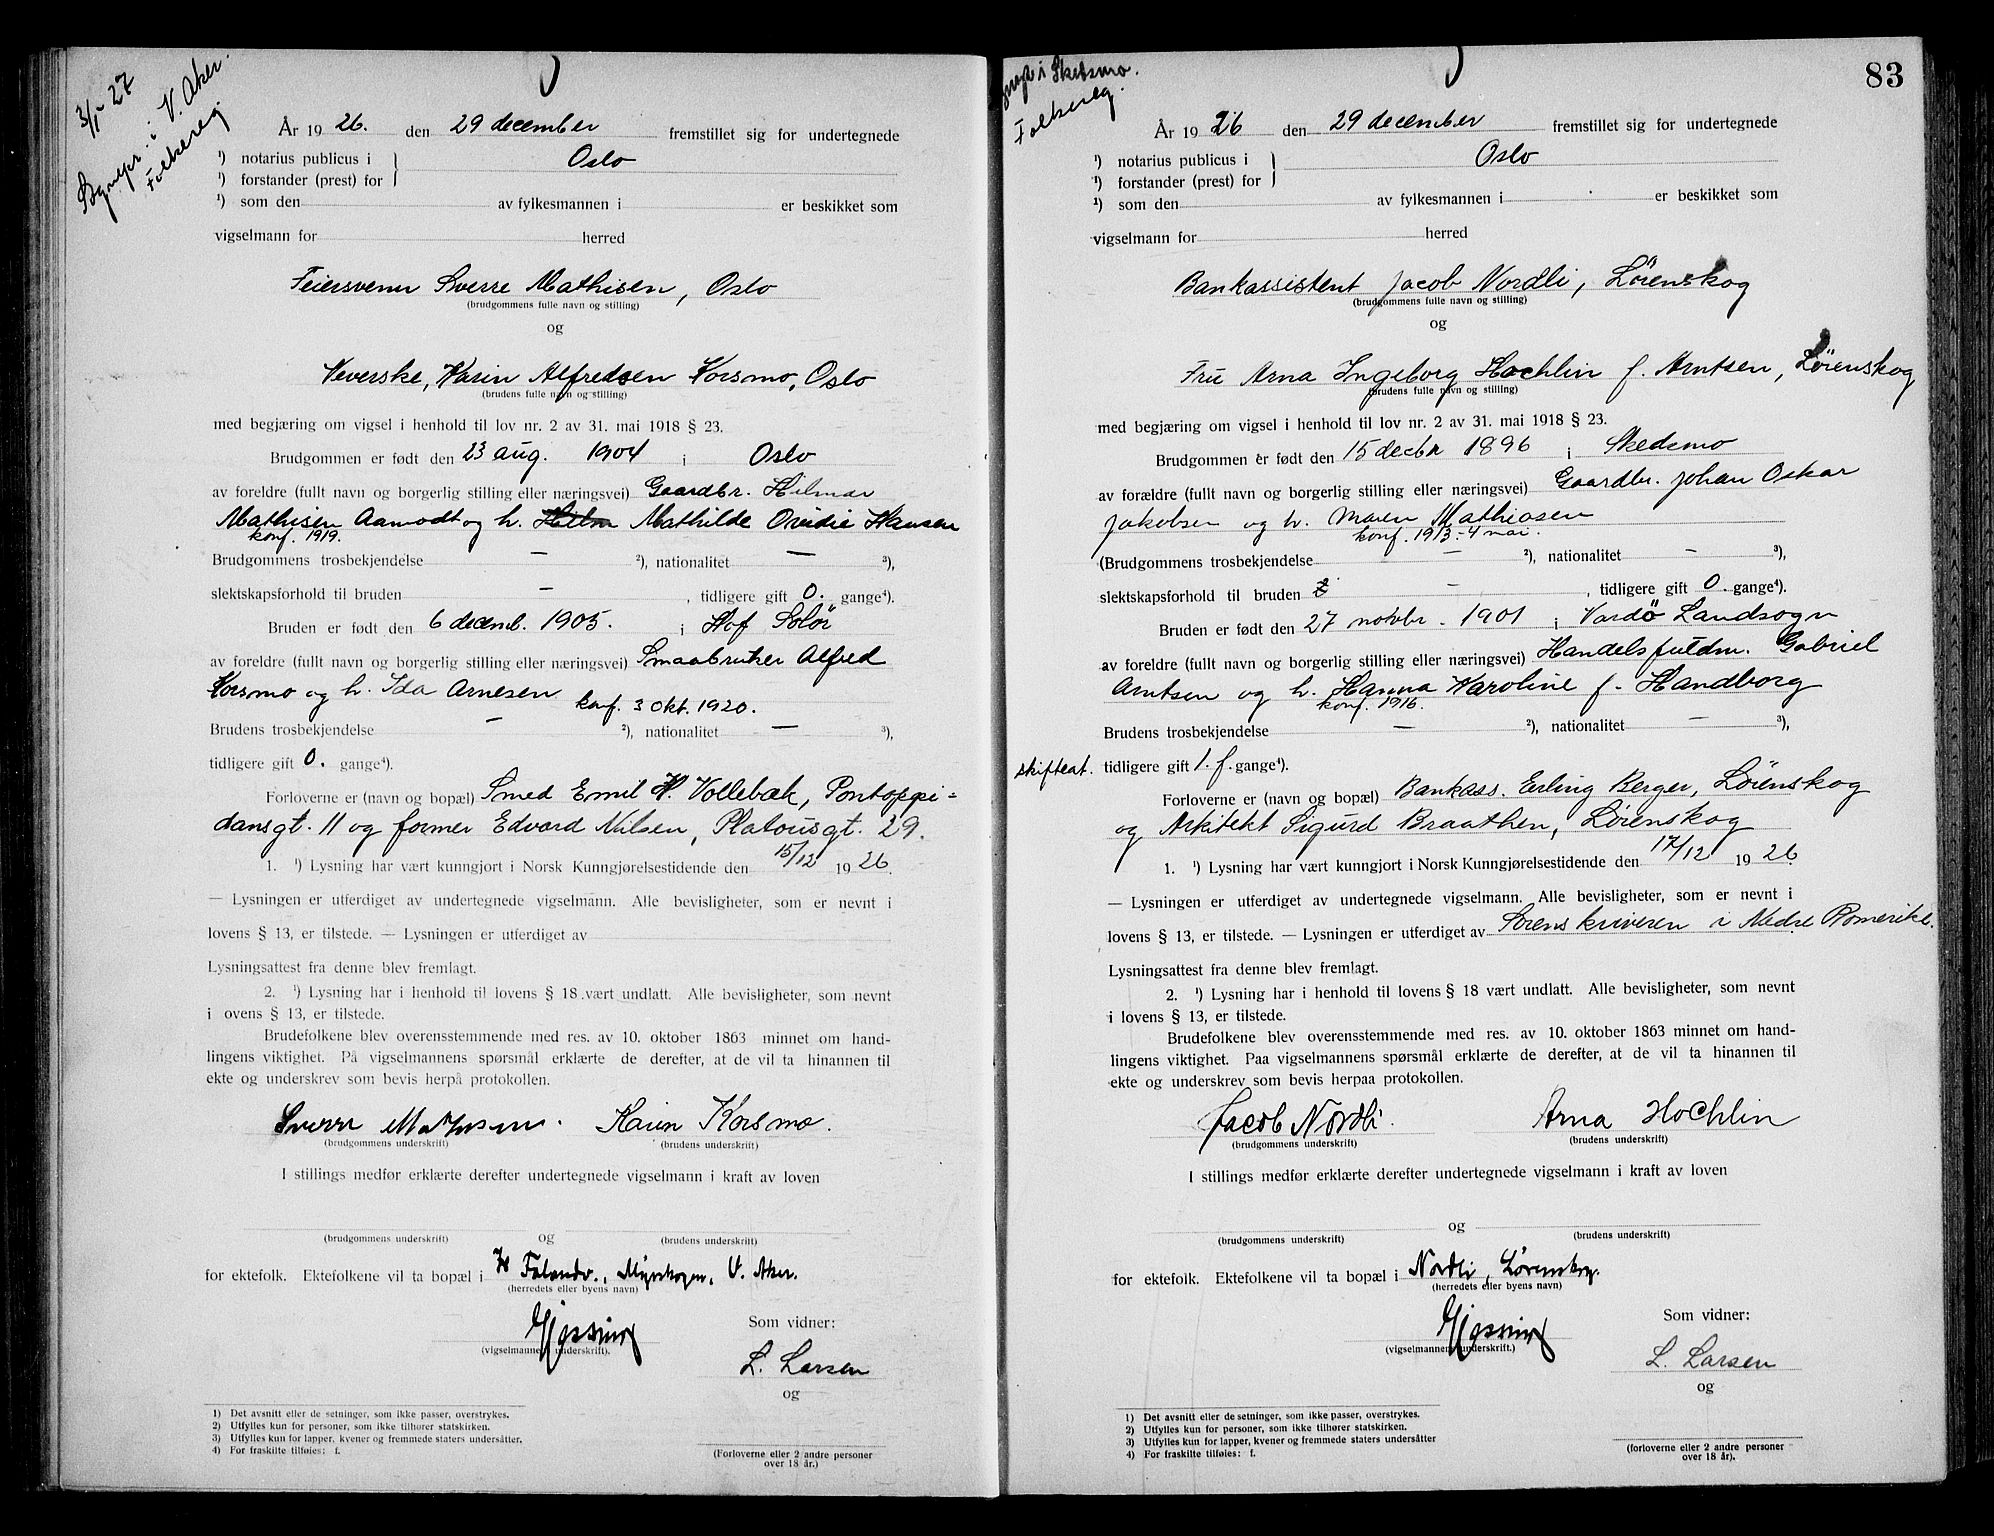 3/1-27
i V. Aker.
Folkereg.
År 1926. den 29 december fremstillet sig for undertegnede
¹) notarius publicus i } Oslo
¹) forstander (prest) for
¹) som den av fylkesmannen i er beskikket som
vigselmann for herred
Feiersvenn Sverre Mathisen, Oslo
(brudgommens fulle navn og stilling)
og
Veverske, Karin Alfredsen Korsmo, Oslo
(brudens fulle navn og stilling)
med begjæring om vigsel i henhold til lov nr. 2 av 31. mai 1918 § 23.
Brudgommen er født den 23 aug. 1904 i Oslo
av foreldre (fullt navn og borgerlig stilling eller næringsvei) Gaardbr. Hilmar
Mathisen Aamodt og h. Mathilde Ovidie Hansen
konf. 1919.
Brudgommens trosbekjendelse — ²), nationalitet — ³),
slektskapsforhold til bruden — , tidligere gift 0. gange⁴).
Bruden er født den 6 decemb. 1905. i Hof Solör
av foreldre (fullt navn og borgerlig stilling eller næringsvei) Smaabruker Alfred
Korsmo og h. Ida Arnesen konf. 3 okt. 1920.
Brudens trosbekjendelse — ²), nationalitet — ³),
tidligere gift 0. gange⁴).
Forloverne er (navn og bopæl) Smed Emil H. Vollebæk, Pontoppi=
dansgt. 11 og former Edvard Nilsen, Platousgt. 29.
1. ¹) Lysning har vært kunngjort i Norsk Kunngjørelsestidende den 15/12 1926.
— Lysningen er utferdiget av undertegnede vigselmann. Alle bevisligheter, som er nevnt i
lovens § 13, er tilstede. — Lysningen er utferdiget av
Lysningsattest fra denne blev fremlagt.
2. ¹) Lysning har i henhold til lovens § 18 vært undlatt. Alle bevisligheter, som nevnt
i ovens § 13, er tilstede.
Brudefolkene blev overensstemmende med res. av 10. oktober 1863 minnet om hand-
lingens viktighet. På vigselmannens spørsmål erklærte de derefter, at de vil ta hinannen til
ekte og underskrev som bevis herpå protokollen.
Sverre Mathisen. Karin Korsmo.
(brudgommens underskrift) (brudens underskrift)
I stillings medfør erklærte derefter undertegnede vigselmann i kraft av loven
og
(brudgommens underskrift) (brudens underskrift)
for ektefolk. Ektefolkene vil ta bopæl i V. Aker.
(herredets eller byens navn)
Gjessing
(vigselmannens underskrift).
Som vidner:
L. Larsen
og
1) Det avsnitt eller de setninger, som ikke passer, overstrykes.
2) Utfylles kun for personer, som ikke tilhører statskirken.
3) Utfylles kun for lapper, kvener og fremmede staters undersåtter.
4) For fraskilte tilføies: f.
(Forloverne eller 2 andre personer
over 18 år.)
83
i Skedsmo.
Folkereg.
År 1926 den 29 december fremstillet sig for undertegnede
¹) notarius publicus i } Oslo
¹) forstander (prest) for
¹) som den av fylkesmannen i er beskikket som
vigselmann for herred
Bankassistent Jacob Nordli, Lörenskog
(brudgommens fulle navn og stilling)
og
Fru Arna Ingeborg Hochlin f. Arntsen, Lörenskog
(brudens fulle navn og stilling)
med begjæring om vigsel i henhold til lov nr. 2 av 31. mai 1918 § 23.
Brudgommen er født den 15 decbr 1896 i Skedsmo
av forældre (fullt navn og borgerlig stilling eller næringsvei) Gaardbr. Johan Oskar
Jakobsen og h. Maren Mathiasen
konf. 1913 - 4 mai.
(Brudgommens trosbekjendelse — ²), nationalitet — ³),
slektskapsforhold til bruden — , tidligere gift 0. gange⁴).
Bruden er født den 27 novbr. 1901 i Vardö Landsogn
av foreldre (fullt navn og borgerlig stilling eller næringsvei) Handelsfuldm. Gabriel
Arntsen og h. Hanna Karoline f. Handborg
konf. 1916.
Brudens trosbekjendelse — ²), nationalitet — ³),
skifteat. tidligere gift 1. f. gange⁴).
Forloverne er (navn og bopæl) Bankass. Erling Berger, Lörenskog
og Arkitekt Sigurd Braathen, Lörenskog
1. ¹) Lysning har vært kunngjort i Norsk Kunngjørelsestidende den 17/12 1926.
— Lysningen er utferdiget av undertegnede vigselmann. Alle bevisligheter, som er nevnt i
lovens § 13, er tilstede. — Lysningen er utferdiget av Sorenskriveren i Nedre Romerike.
Lysningsattest fra denne blev fremlagt.
2. ¹) Lysning har i henhold til lovens § 18 vært undlatt. Alle bevisligheter, som nevnt
i lovens § 13, er tilstede.
Brudefolkene blev overensstemmende med res. av 10. oktober 1863 minnet om hand-
lingens viktighet. Paa vigselmannens spørsmål erklærte de derefter, at de vil ta hinannen til
ekte og underskrev som bevis herpaa protokollen.
Jacob Nordli. Arna Hochlin
(brudgommens underskrift) (brudens underskrift)
I stillings medfør erklærte derefter undertegnede vigselmann i kraft av loven
og
(brudgommens underskrift) (brudens underskrift)
for ektefolk. Ektefolkene vil ta bopæl i Nordli, Lørenskog.
(herredets eller byens navn)
Gjessing
(vigselmannens underskrift.)
Som vidner:
L. Larsen
og
1) Det avsnitt eller de setninger, som ikke passer, overstrykes.
2) Utfylles kun for personer, som ikke tilhører statskirken.
3) Utfylles kun for lapper, kvener og fremmede staters undersåtter
4) For fraskilte tilføies: f.
(forloverne eller 2 andre personer
over 18 år.)